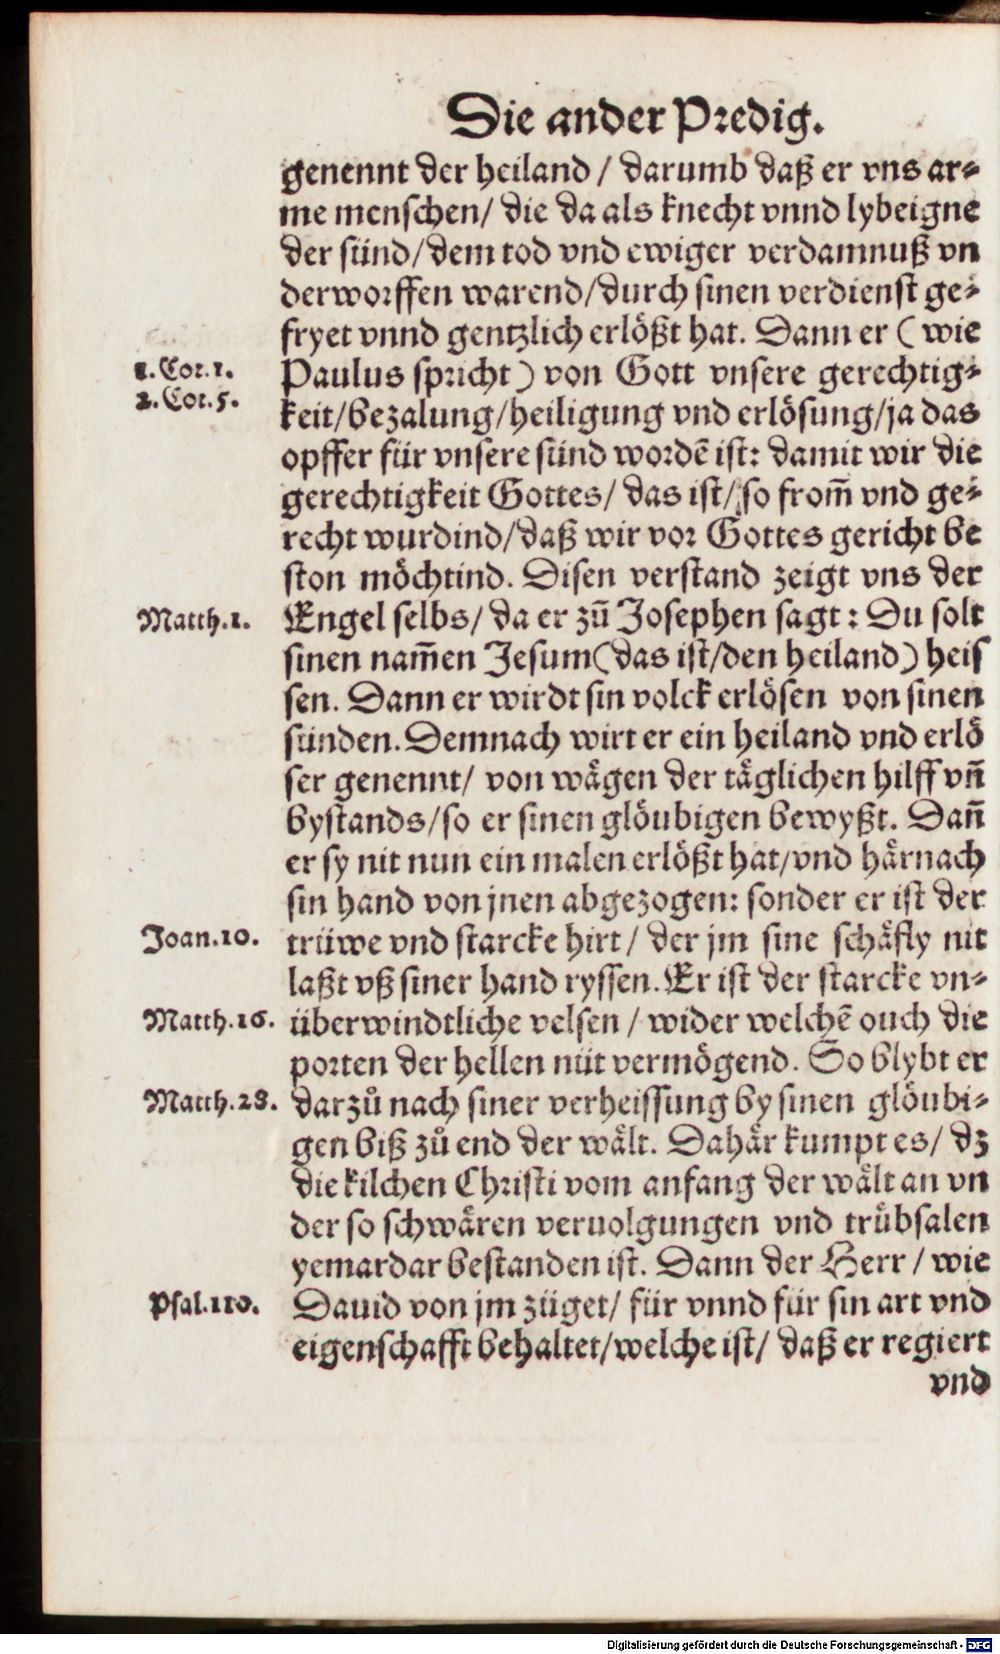 Die ander Predig.
genennt der heiland / darumb daß er vns ar⸗
me menschen/ die da als knecht vnnd lybeigne
der sünd/dem tod vnd ewiger verdamnuß vn
derworffen warend/durch sinen verdienst ge⸗
fryet vnnd gentzlich erlößt hat. Dann er ( wie
1. Cor. 1. Paulus spricht ) von Gott vnsere gerechtig⸗
2. Cor. 5. keit/bezalung/heiligung vnd erlösung/ja das
opffer für vnsere sünd wordē ist: damit wir die
gerechtigkeit Gottes/ das ist/ so from̄ vnd ge⸗
recht wurdind/daß wir vor Gottes gericht be
ston möchtind. Disen verstand zeigt vns der
Matth. 1. Engel selbs/ da er zū Josephen sagt : Du solt
sinen nam̄en Jesum(das ist/den heiland) heis
sen. Dann er wirdt sin volck erlösen von sinen
sünden. Demnach wirt er ein heiland vnd erlö
ser genennt/ von wägen der täglichen hilff vn̄
bystands/so er sinen glöubigen bewyßt. Dan̄
er sy nit nun ein malen erlößt hat/vnd härnach
sin hand von jnen abgezogen: sonder er ist der
Joan. 10. trüwe vnd starcke hirt/ der jm sine schäfly nit
laßt vß siner hand ryssen. Er ist der starcke vn⸗
Matth. 16. überwindtliche velsen / wider welchē ouch die
porten der hellen nüt vermögend. So blybt er
Matth. 28. darzů nach siner verheissung by sinen glöubi⸗
gen biß zů end der wält. Dahär kumpt es/ dz
die kilchen Christi vom anfang der wält an vn
der so schwären veruolgungen vnd trübsalen
yemardar bestanden ist. Dann der Herr / wie
Psal. 110. Dauid von jm züget/ für vnnd für sin art vnd
eigenschafft behaltet/welche ist/ daß er regiert
vnd
Digitalisierung gefördert durch die Deutsche Forschungsgemeinschaft - DFG